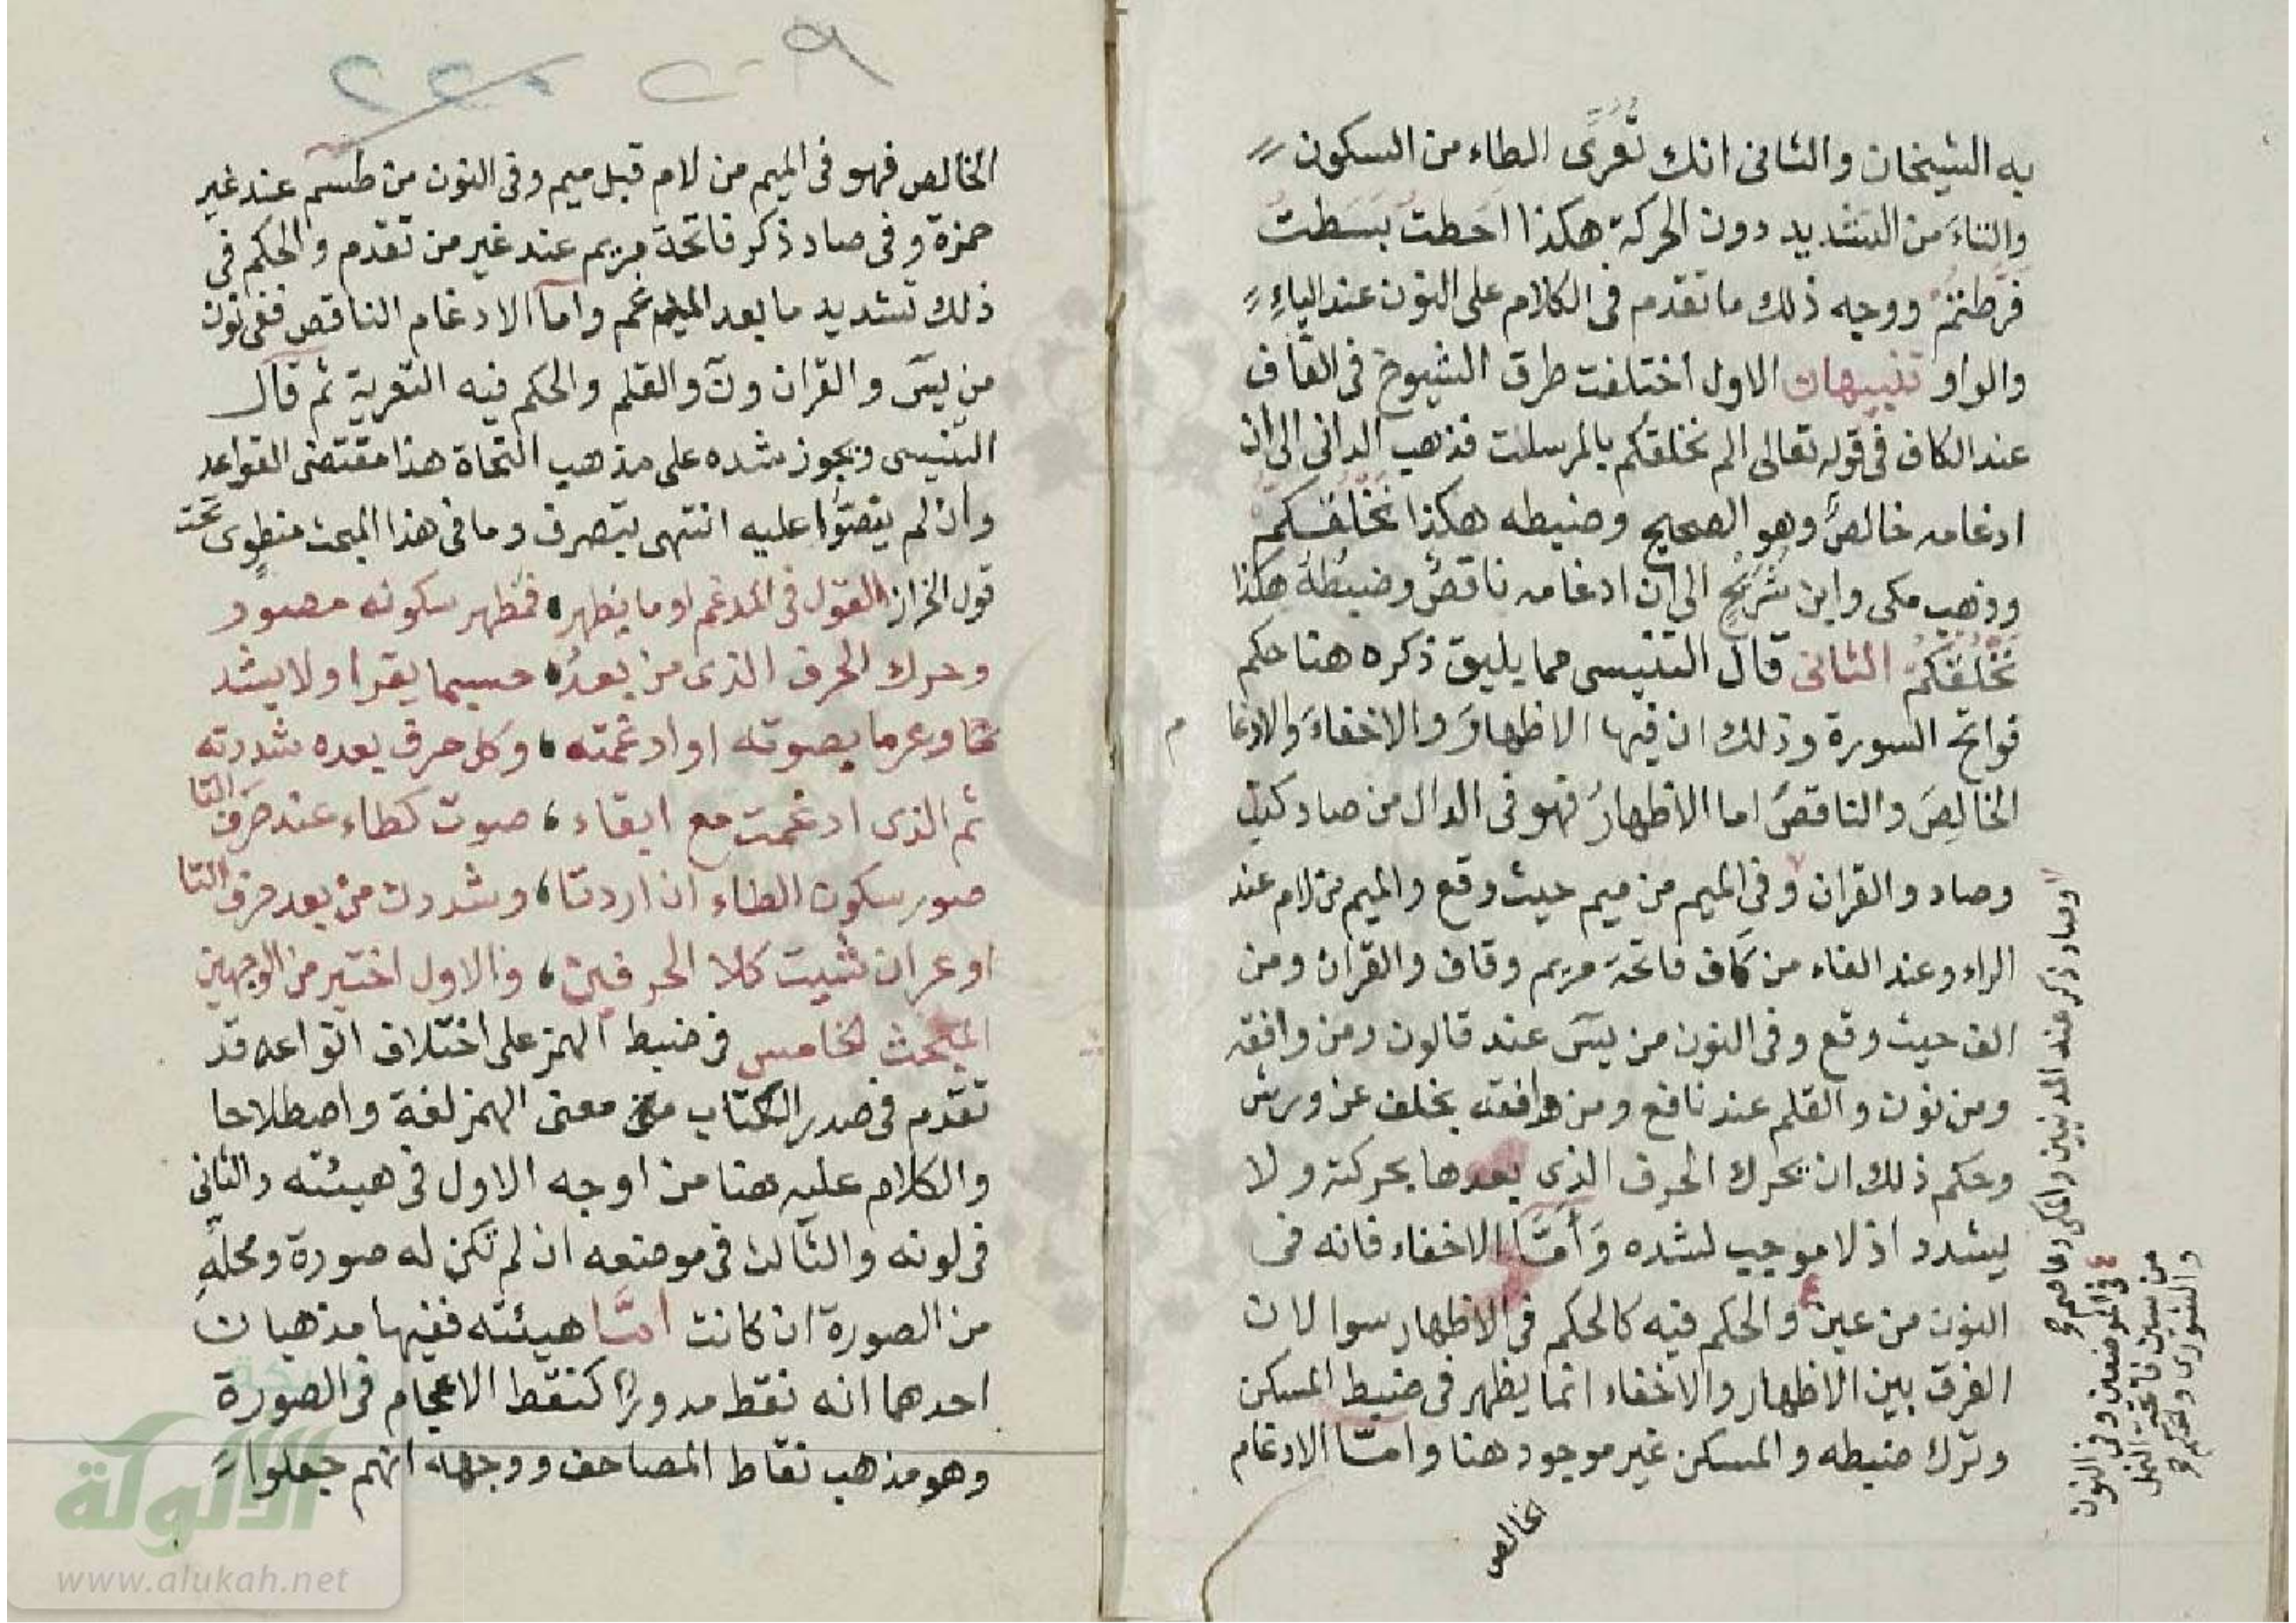 به الشيخان والثانى انك تُعَرِّى الطاء من السكون
والتاءَ من التشديد دون الحركة هكذا احَطتُ بَسَطتَ
فرطتمُ ووجه ذلك ما تقدم فى الكلام على النون عند الياءِ
والواو تنبيهان الاول اختلفت طرق الشيوخ فى القاف
عند الكاف فى قوله تعالى الم نخلقكم بالمرسلت فذهب الدانى الى ان
ادغامه خالصٌ وهو الصحيح وضبطه هكذا نخلقكم
وذهب مكى وابن شُرَيْحٍ الى ان ادغامه ناقصٌ وضبطُهُ هكذا
نَخْلُقكُّمْ الثانى قال التنسى مما يليق ذكره هنا حكم
فواتح السورة وذلك ان فيها الاظهارَ والاخفاءَ والادغا م
الخالِصَ والناقصَ اما الاظهارُ فهو فى الدال من صاد
وصاد والقران وفى الميم من ميم حيث وقع والميم من لام عند
الراء وعند الفاء من كاف فاتحة مريم وقاف والقران ومن
الف حيث وقع وفى النون من يسٓ عند قالون ومن وافقه
ومن نون والقلم عند نافع ومن وافقه بخلف عن ورش
وحكم ذلك ان يحرك الحرف الذى بعدها بحركته ولا
يشدد اذ لا موجب لشده وَأَمَّا الاخفاء فانه فى
النون من عين والحكم فيه كالحكم فى الاظهار سوا لان
الفرق بين الاظهار والاخفاء انما يظهر فى ضبط المسكن
وترك ضبطه والمسكن غير موجود هنا وامّا الادغام
الخالص
وصاد ذكر عند المدنيين والمكى وعاصم
فى الموضعين وفى النون
من سين فاتحة النمل
والشورى
٢٠٩
٢٢٠
الخالص فهو فى الميم من لام قبل ميم وفى النون من طسٓم عند غير
حمزة وفى صاد ذكر فاتحة مريم عند غير من تقدم والحكم فى
ذلك تشديد ما بعد المدغم وامآ الادغام الناقص ففى نون
من يسٓ والقران ونٓ والقلم والحكم فيه التعرية ثم قال
التنسى ويجوز شده على مذهب النحاة هذا مقتضى القواعد
وان لم ينصّوا عليه انتهى بتصرف وما فى هذا المبحث منطوٍى تحت
قول الخراز القول فى المدغم او ما يظهر، فمظهر سكونه مصور
وحرك الحرف الذى من بعدُ، حسبما يقرا ولا يشد
وعرما بصوته او ادغمته، وكل حرف بعده شددته
ثم الذى ادغمت مع ابقاء، صوت كطاء عند حَرف التا
صور سكون الطاء ان اردتا، وشددن من بعد حرف التا
او عر ان شئت كلا الحرفين، والاول اختير من الوجهين
المبحث الخامس فى ضبط الهمز على اختلاف انواعه قد
تقدم فى صدر الكتاب معنى الهمز لغة واصطلاحا
والكلام عليه هنا من اوجه الاول فى هيئته والثانى
فى لونه والثالث فى موضعه ان لم تكن له صورة ومحلهِ
من الصورة ان كانت امَّا هيئته ففيها مذهبان
احدهما انه نقط مدورًا كنقط الاعجام فى الصورة
وهو مذهب نقاط المصاحف ووجهه انهم جعلوا
الألوكة
www.alukah.net